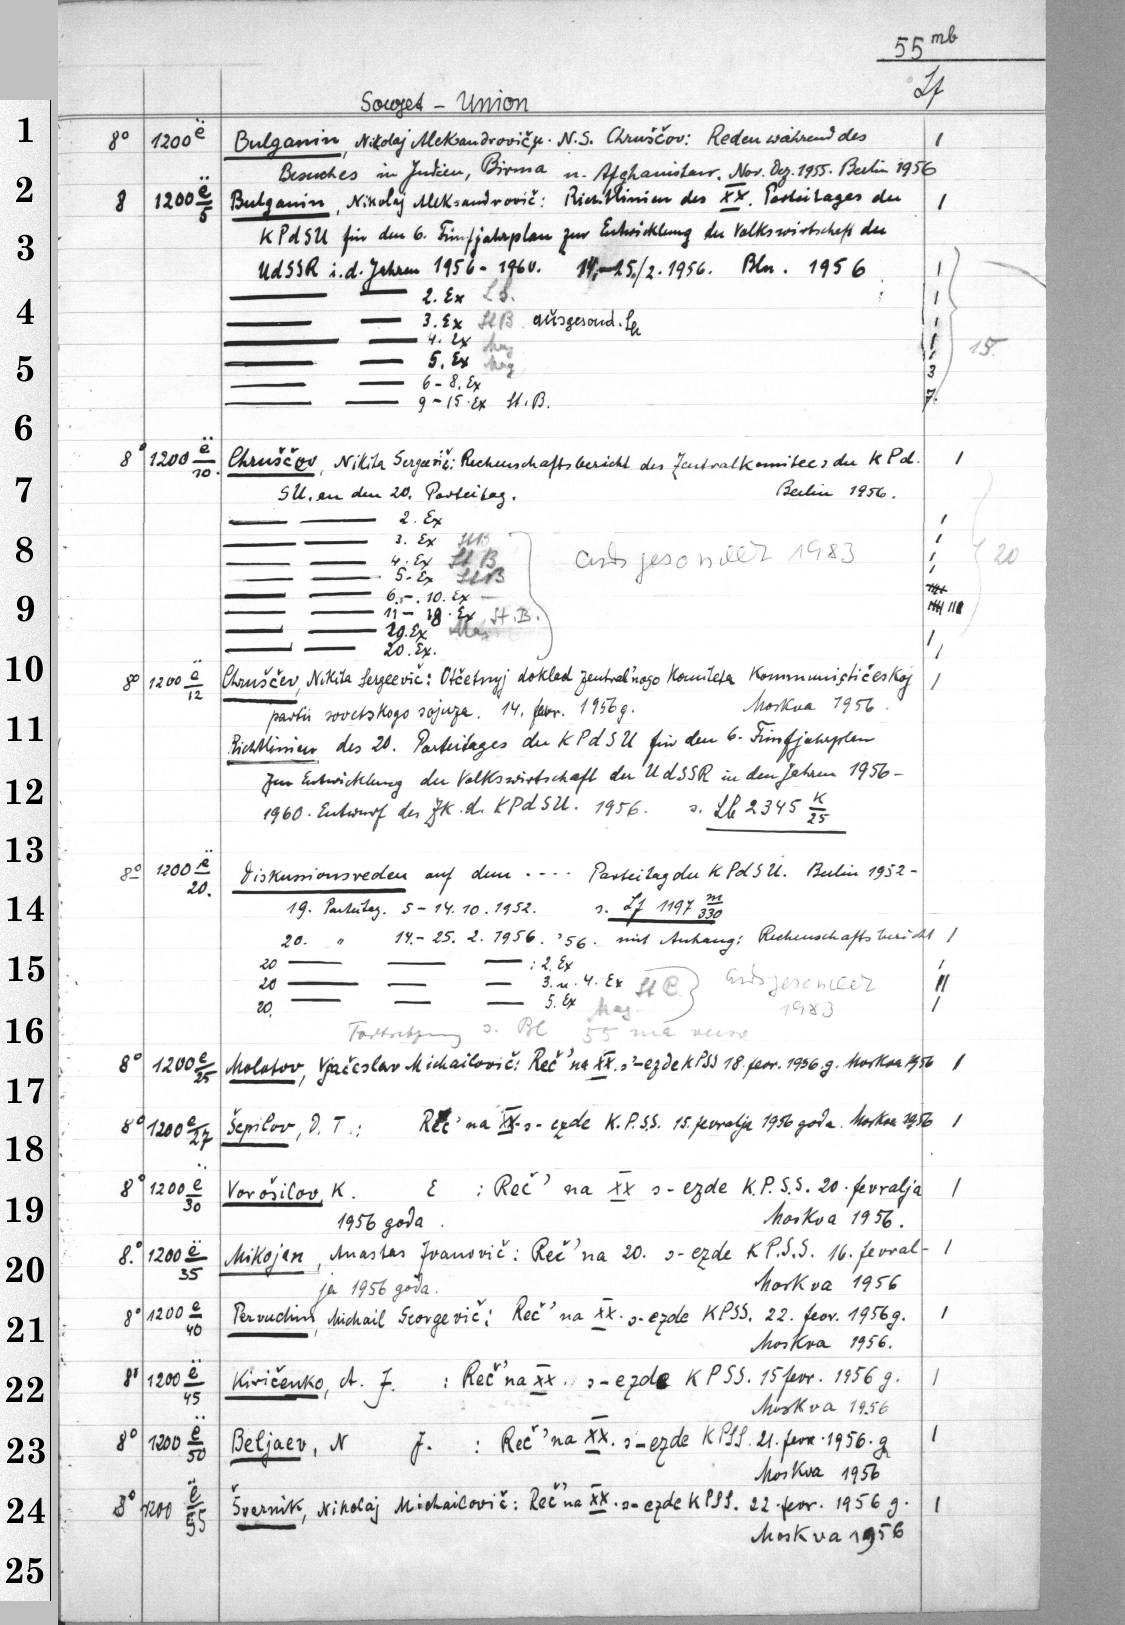 55 mb
Lf
Sowjet - Union
1
8° 1200 ë Bulganin, Nikolaj Aleksandrovič u. N.S. Chruščov: Reden während des 1
Besuches in Indien, Birma u. Afghanistan. Nov. Dez. 1955. Berlin 1956
2
8 1200 ë/5 Bulganin, Nikolaj Aleksandrovič: Richtlinien des XX. Parteitages der 1
3
KPdSU für den 6. Fünfjahrplan zur Entwicklung der Volkswirtschaft der
UdSSR i.d. Jahren 1956-1960. 14.-25./2. 1956. Bln. 1956 1
4
— — 2. Ex LS. 1
— — 3. Ex StB ausgesond. 1
— — 4. Ex Mag 1
15
5
— — 5. Ex Mag 1
— — 6-8. Ex 3
— — 9-15. Ex St.B. 7.
6
8° 1200 ë/10. Chruščov, Nikita Sergeevič: Rechenschaftsbericht des Zentralkomitees der KPd. 1
7
SU. an den 20. Parteitag. Berlin 1956.
— — 2. Ex 1
8
— — 3. Ex StB 1
— — 4. Ex St B ausgesondert 1983 1 20
— — 5. Ex StB 1
9
— — 6.-10. Ex — ||||
— — 11-18. Ex St.B. |||| |||
— — 19. Ex Mag 1
— — 20. Ex. 1
10
8° 1200 ë/12 Chruščev, Nikita Sergeevič: Otčetnyj doklad zentral'nogo Komiteta Kommunističeskoj 1
partii sovetskogo sojuza. 14. fevr. 1956 g. Moskva 1956.
11
Richtlinien des 20. Parteitages der KPdSU für den 6. Fünfjahrplan
12
zur Entwicklung der Volkswirtschaft der UdSSR in den Jahren 1956-
1960. Entwurf des ZK. d. KPdSU. 1956. s. Lb 2345 K/25
13
8° 1200 ë/20. Diskussionsreden auf dem .... Parteitag der KPdSU. Berlin 1952-
14
19. Parteitag. 5-14.10.1952. s. Lf 1197 m/330
20. " 14.-25. 2. 1956. '56. mit Anhang: Rechenschaftsbericht 1
15
20 — — — : 2. Ex 1
20 — — — 3. u. 4. Ex St B. ausgesondert 11
20. — — — 5. Ex Mag. 1983 1
16
Fortsetzung s. Bl 55 ma verso
8° 1200 ë/25 Molotov, Vjačeslav Michailovič: Reč' na XX. s-ezde KPSS 18. fevr. 1956 g. Moskva 1956 1
17
8° 1200 ë/27 Šepilov, D. T.: Reč' na XX. s-ezde K.P.S.S. 15. fevralja 1956 goda. Moskva 1956 1
18
8° 1200 ë/30 Vorošilov, K. E : Reč' na XX s-ezde K.P.S.S. 20. fevralja 1
19
1956 goda. Moskva 1956.
8. 1200 ë/35 Mikojan, Anastas Ivanovič: Reč' na 20. s-ezde K.P.S.S. 16. fevral- 1
20
ja 1956 goda. Moskva 1956
8° 1200 ë/40 Pervuchin, Michail Georgevič: Reč' na XX. s-ezde KPSS. 22. fevr. 1956 g. 1
21
Moskva 1956.
22
8° 1200 ë/45 Kiričenko, A. J. : Reč' na XX. s-ezde KPSS. 15 fevr. 1956 g. 1
Moskva 1956
23
8° 1200 ë/50 Beljaev, N J. : Reč' na XX. s-ezde KPSS. 21. fevr. 1956. g 1
Moskva 1956
24
8° 1200 ë/55 Švernik, Nikolaj Michailovič: Reč' na XX. s-ezde KPSS. 22. fevr. 1956 g. 1
Moskva 1956
25